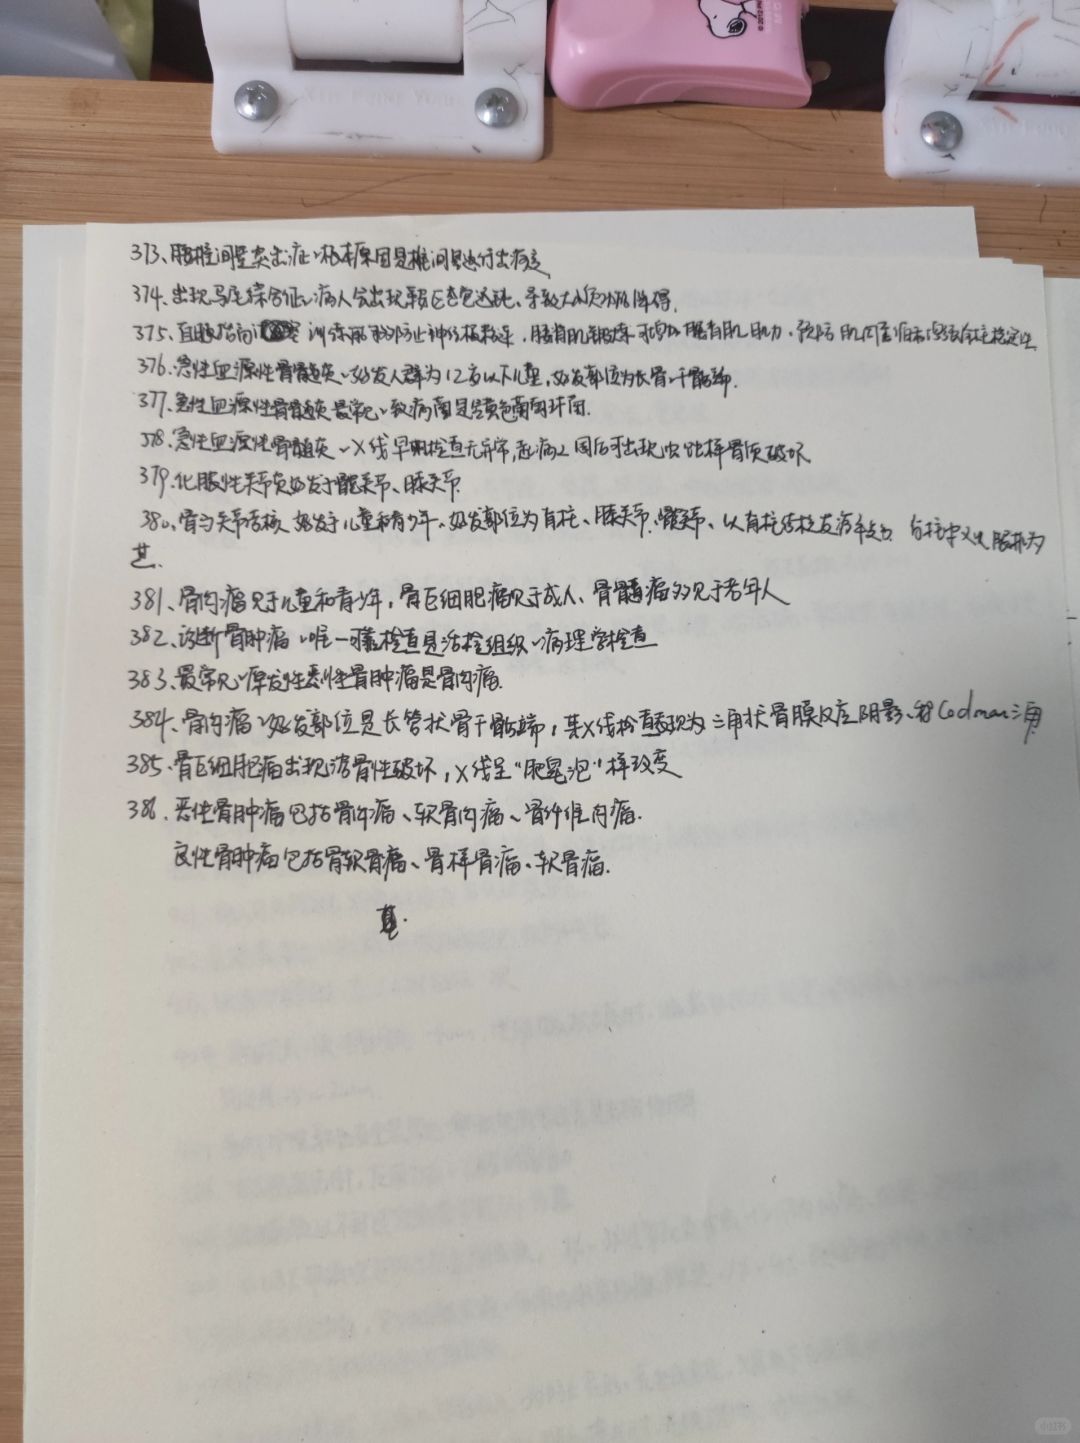 373、腰椎间盘突出症的根本原因是椎间盘退行性病变
374、出现马尾综合征的病人会出现鞍区感觉迟钝、导致大小便功能障碍.
375、直腿抬高 训练能够防止神经根粘连,腰背肌锻炼可增加腰背肌肌力,预防肌肉萎缩和增强脊柱稳定性
376、急性血源性骨髓炎的好发人群为12岁以下儿童,好发部位为长骨干骺端.
377、急性血源性骨髓炎最常见的致病菌是金黄色葡萄球菌.
378、急性血源性骨髓炎的X线早期检查无异常,起病2周后可出现虫蚀样骨质破坏
379、化脓性关节炎好发于髋关节、膝关节.
380、骨与关节结核 好发于儿童和青少年、好发部位为脊柱、膝关节、髋关节、以脊柱结核发病率最高 脊柱中又以腰椎为
主.
381、骨肉瘤见于儿童和青少年,骨巨细胞瘤见于成人、骨髓瘤多见于老年人
382、诊断骨肿瘤的唯一可靠检查是活检组织的病理学检查
383、最常见的原发性恶性骨肿瘤是骨肉瘤.
384、骨肉瘤的好发部位是长管状骨干骺端,其X线检查表现为三角状骨膜反应阴影、称Codman三角
385、骨巨细胞瘤出现溶骨性破坏,X线呈"肥皂泡"样改变
386、恶性骨肿瘤包括骨肉瘤、软骨肉瘤、骨纤维肉瘤.
良性骨肿瘤包括骨软骨瘤、骨样骨瘤、软骨瘤.